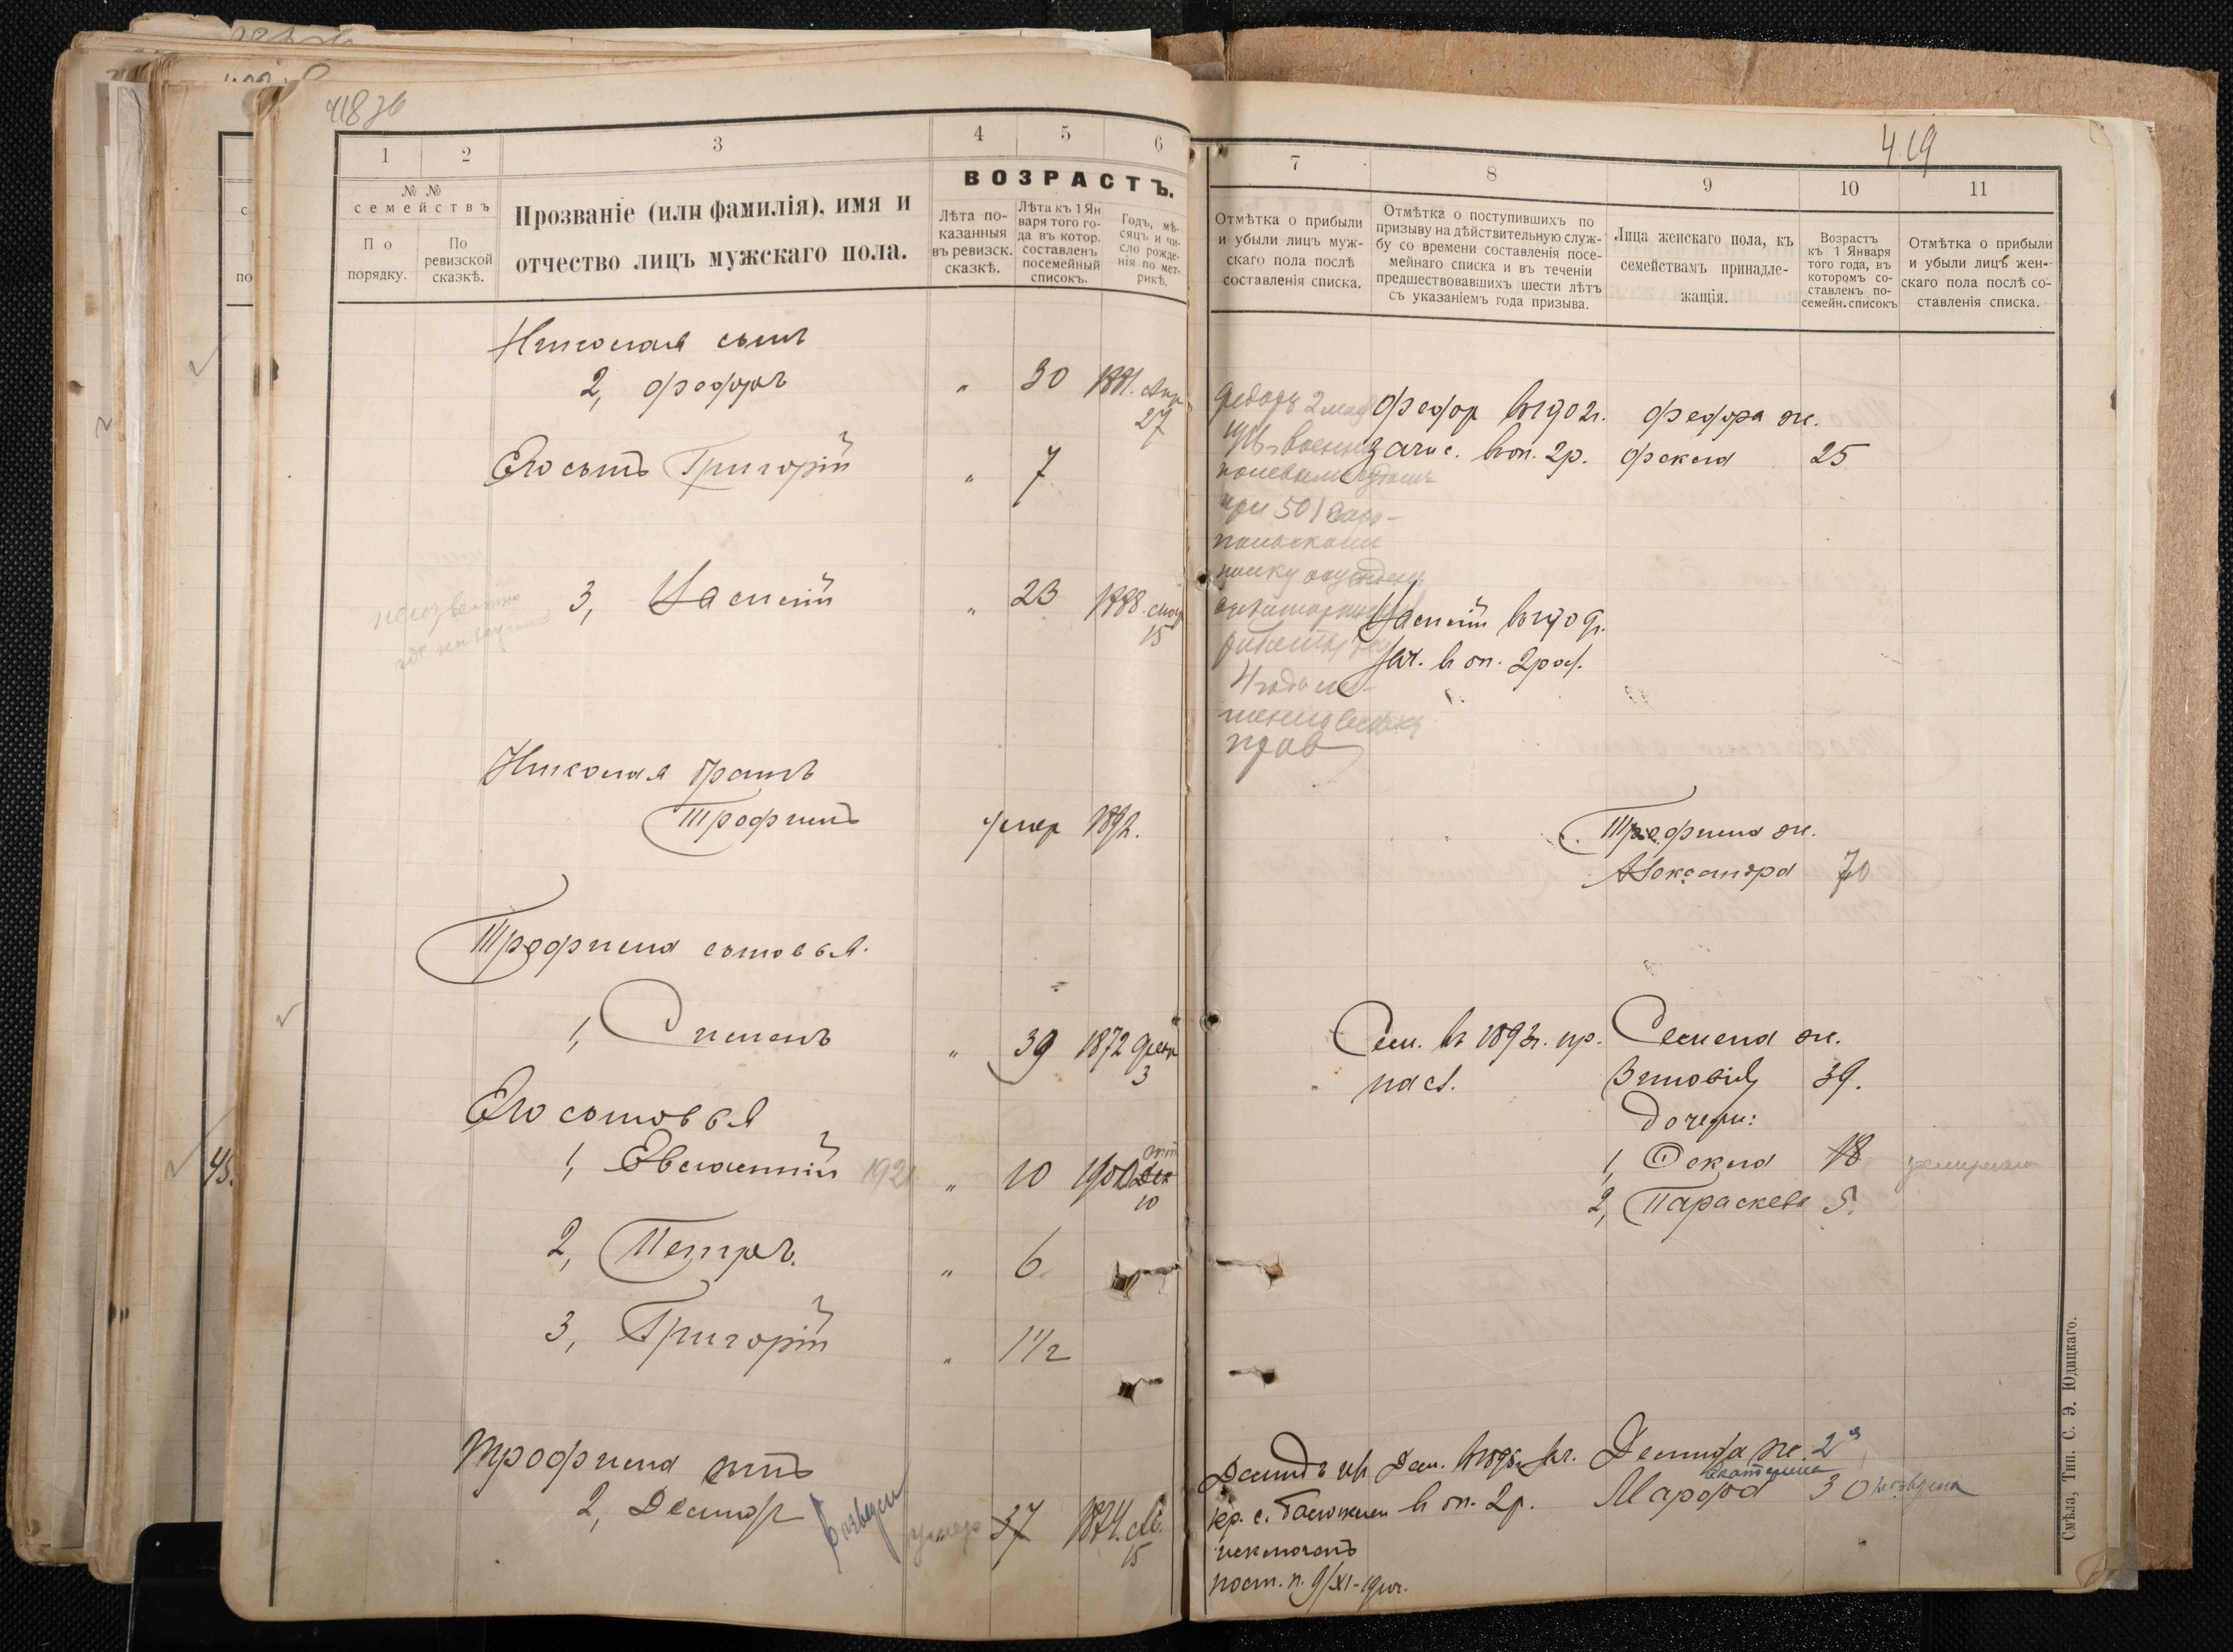 418 зв
1
2
3
4
5
6
№ №
семействъ
По порядку.
По ревизской сказкѣ.
Прозваніе (или фамилія), имя и
отчество лицъ мужскаго пола.
ВОЗРАСТЪ.
Лѣта по-
казанныя
въ ревизск.
сказкѣ.
Лѣта къ 1 Ян
варя того го-
да въ котор.
составленъ
посемейный
списокъ.
Годъ, мѣ-
сяцъ и чи-
сло рожде-
нія по мет-
рикѣ.
Николая сынъ
2, Федоръ " 30 1881. Апр
27
Его сынъ Григорій " 7
неизвестно
где находит
3, Василій " 23 1888.
15
Николая братъ
Трофимъ умер 1892.
Трофима сыновья.
1, Сименъ " 39 1872 Февр
3
Его сыновья
Окт
1, Евстатій " 10 1900 Дек
10
2, Петръ. " 6
3, Григорій " 1 1/2
Трофима сынъ
2, Демид умер 37 1874.
15
45.
419
7
8
9
10
11
Отмѣтка о прибыли
и убыли лицъ муж-
скаго пола послѣ
составленія списка.
Отмѣтка о поступившихъ по
призыву на дѣйствительную служ-
бу со времени составленія посе-
мейнаго списка и въ теченіи
предшествовавшихъ шести лѣтъ
съ указаніемъ года призыва.
Лица женскаго пола, къ
семействамъ принадле-
жащія.
Возрастъ
къ 1 Января
того года, въ
которомъ со-
ставленъ по-
семейн. списокъ
Отмѣтка о прибыли
и убыли лицъ жен-
скаго пола послѣ со-
ставленія списка.
Федоръ 2 мая
военно
полевым судом
при 501
полку осужден
4 года
прав
Федор въ 1902г.
зачис. въ оп. 2р.
Федора ж.
Фекла 25
Василій въ 1909г.
зач. в оп. 2раз.
Трофима ж.
Александра 70
Сем. въ 1893г. пр.
на сл.
Семена ж.
Зиновія 39.
Дочери:
1, Фекла 18
2, Параскева 5.
Демидъ
кр. с.
исключенъ
пост. п. 9/XI-
Дем. въ 1895г. зч.
в оп. 2р.
Демида ж. 2я
Екатерина
Марфа 30
Смѣла, Тип. С. Э. Юдицкаго.